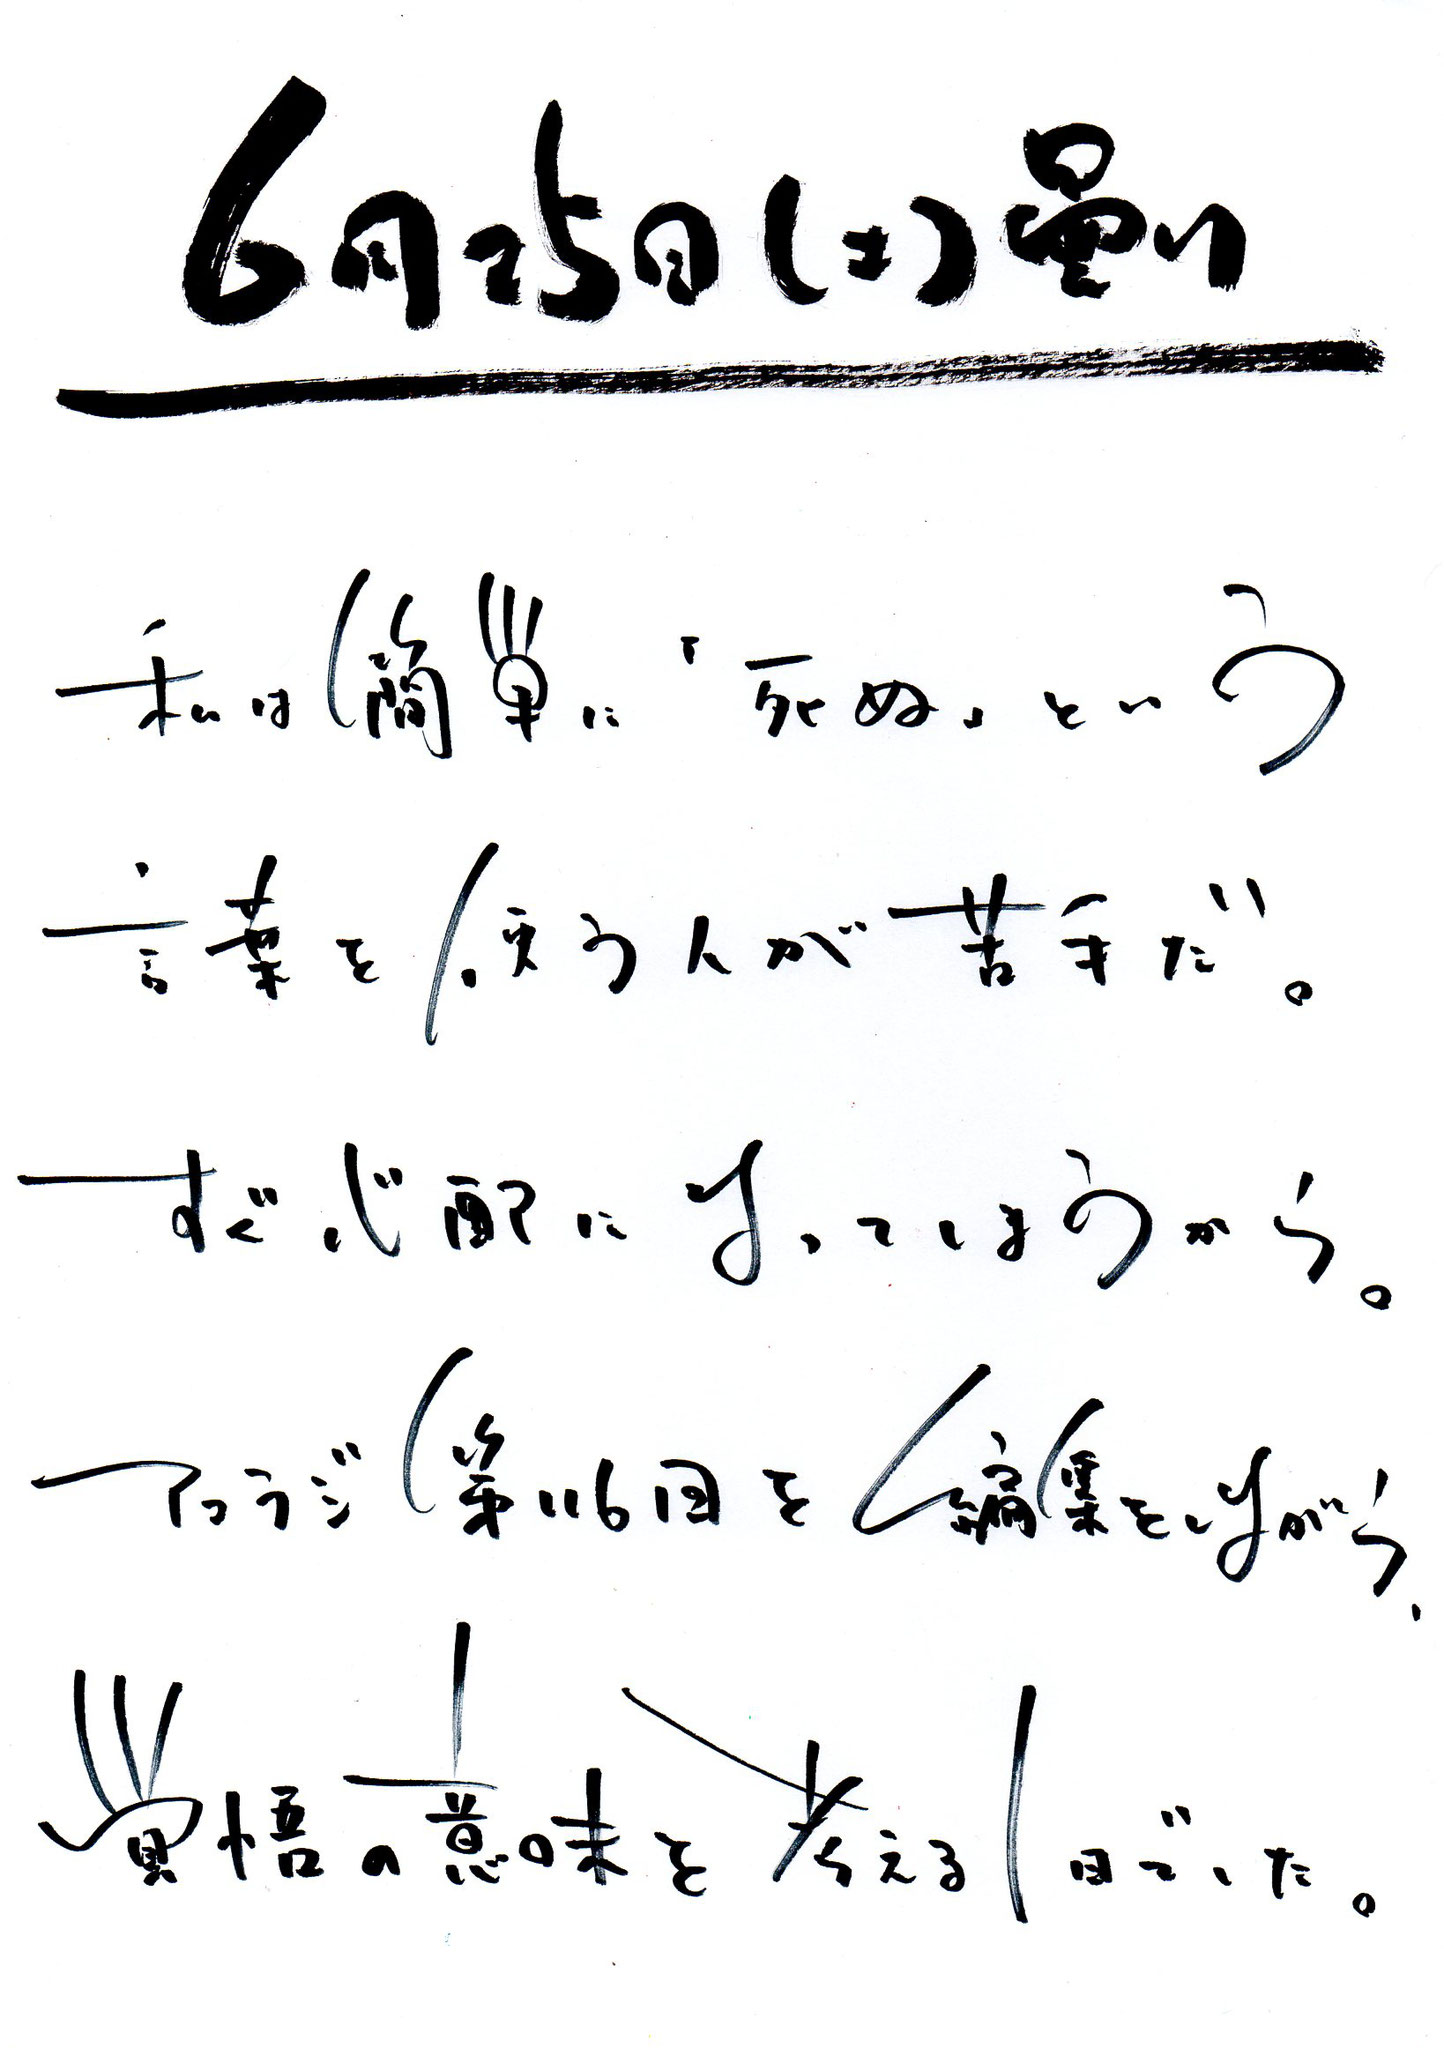 6月25日(土)曇り
私は簡単に「死ぬ」という
言葉を使う人が苦手だ。
すぐ心配になってしまうから。
アコラジ第116回を編集をしながら、
覚悟の意味を考える1日でした。